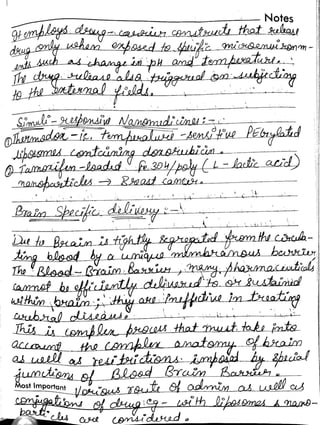 Notes
It employs drug-carrier constructs that release
drug only when exposed to specific microenvironm-
ents such as change in pH and temperature.
The drug release also triggered on subjecting
to the external fields.
Simuli-responsive Nanomidicines:-
① Thermodox - ie. temperature-sensitive PEGylated
liposomes containing doxorubicin.
② Tamoxifen-loaded Fe3O4/poly (L-lactic acid)
nanoparticles → Breast cancer.
Brain Specific delivery:-
Due to Brain is tightly segregated from the circula-
ting blood by a unique membranous barrier
The Blood-Brain Barrier, many pharmaceuticals
cannot be efficiently delivered to or sustained
within brain; they are ineffective in treating
cerebral diseases.
This is complex process that must take into
account the complex anatomy of brain
as well as restrictions imposed by special
junctions of Blood Brain Barrier.
Most Important Various route of admin as well as
conjugations of drug:eg- with liposomes & nano-
particles are considered.